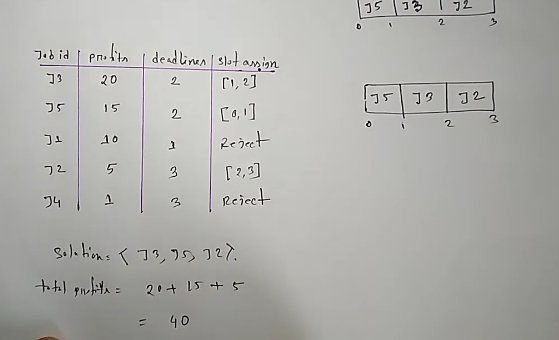 J5 J3 J2
0 1 2 3
Job id profits deadlines slot assign
J3 20 2 [1, 2]
J5 15 2 [0, 1]
J1 10 1 Reject
J2 5 3 [2, 3]
J4 1 3 Reject
J5 J3 J2
0 1 2 3
Solution = { J3, J5, J2 }.
total profits = 20 + 15 + 5
= 40